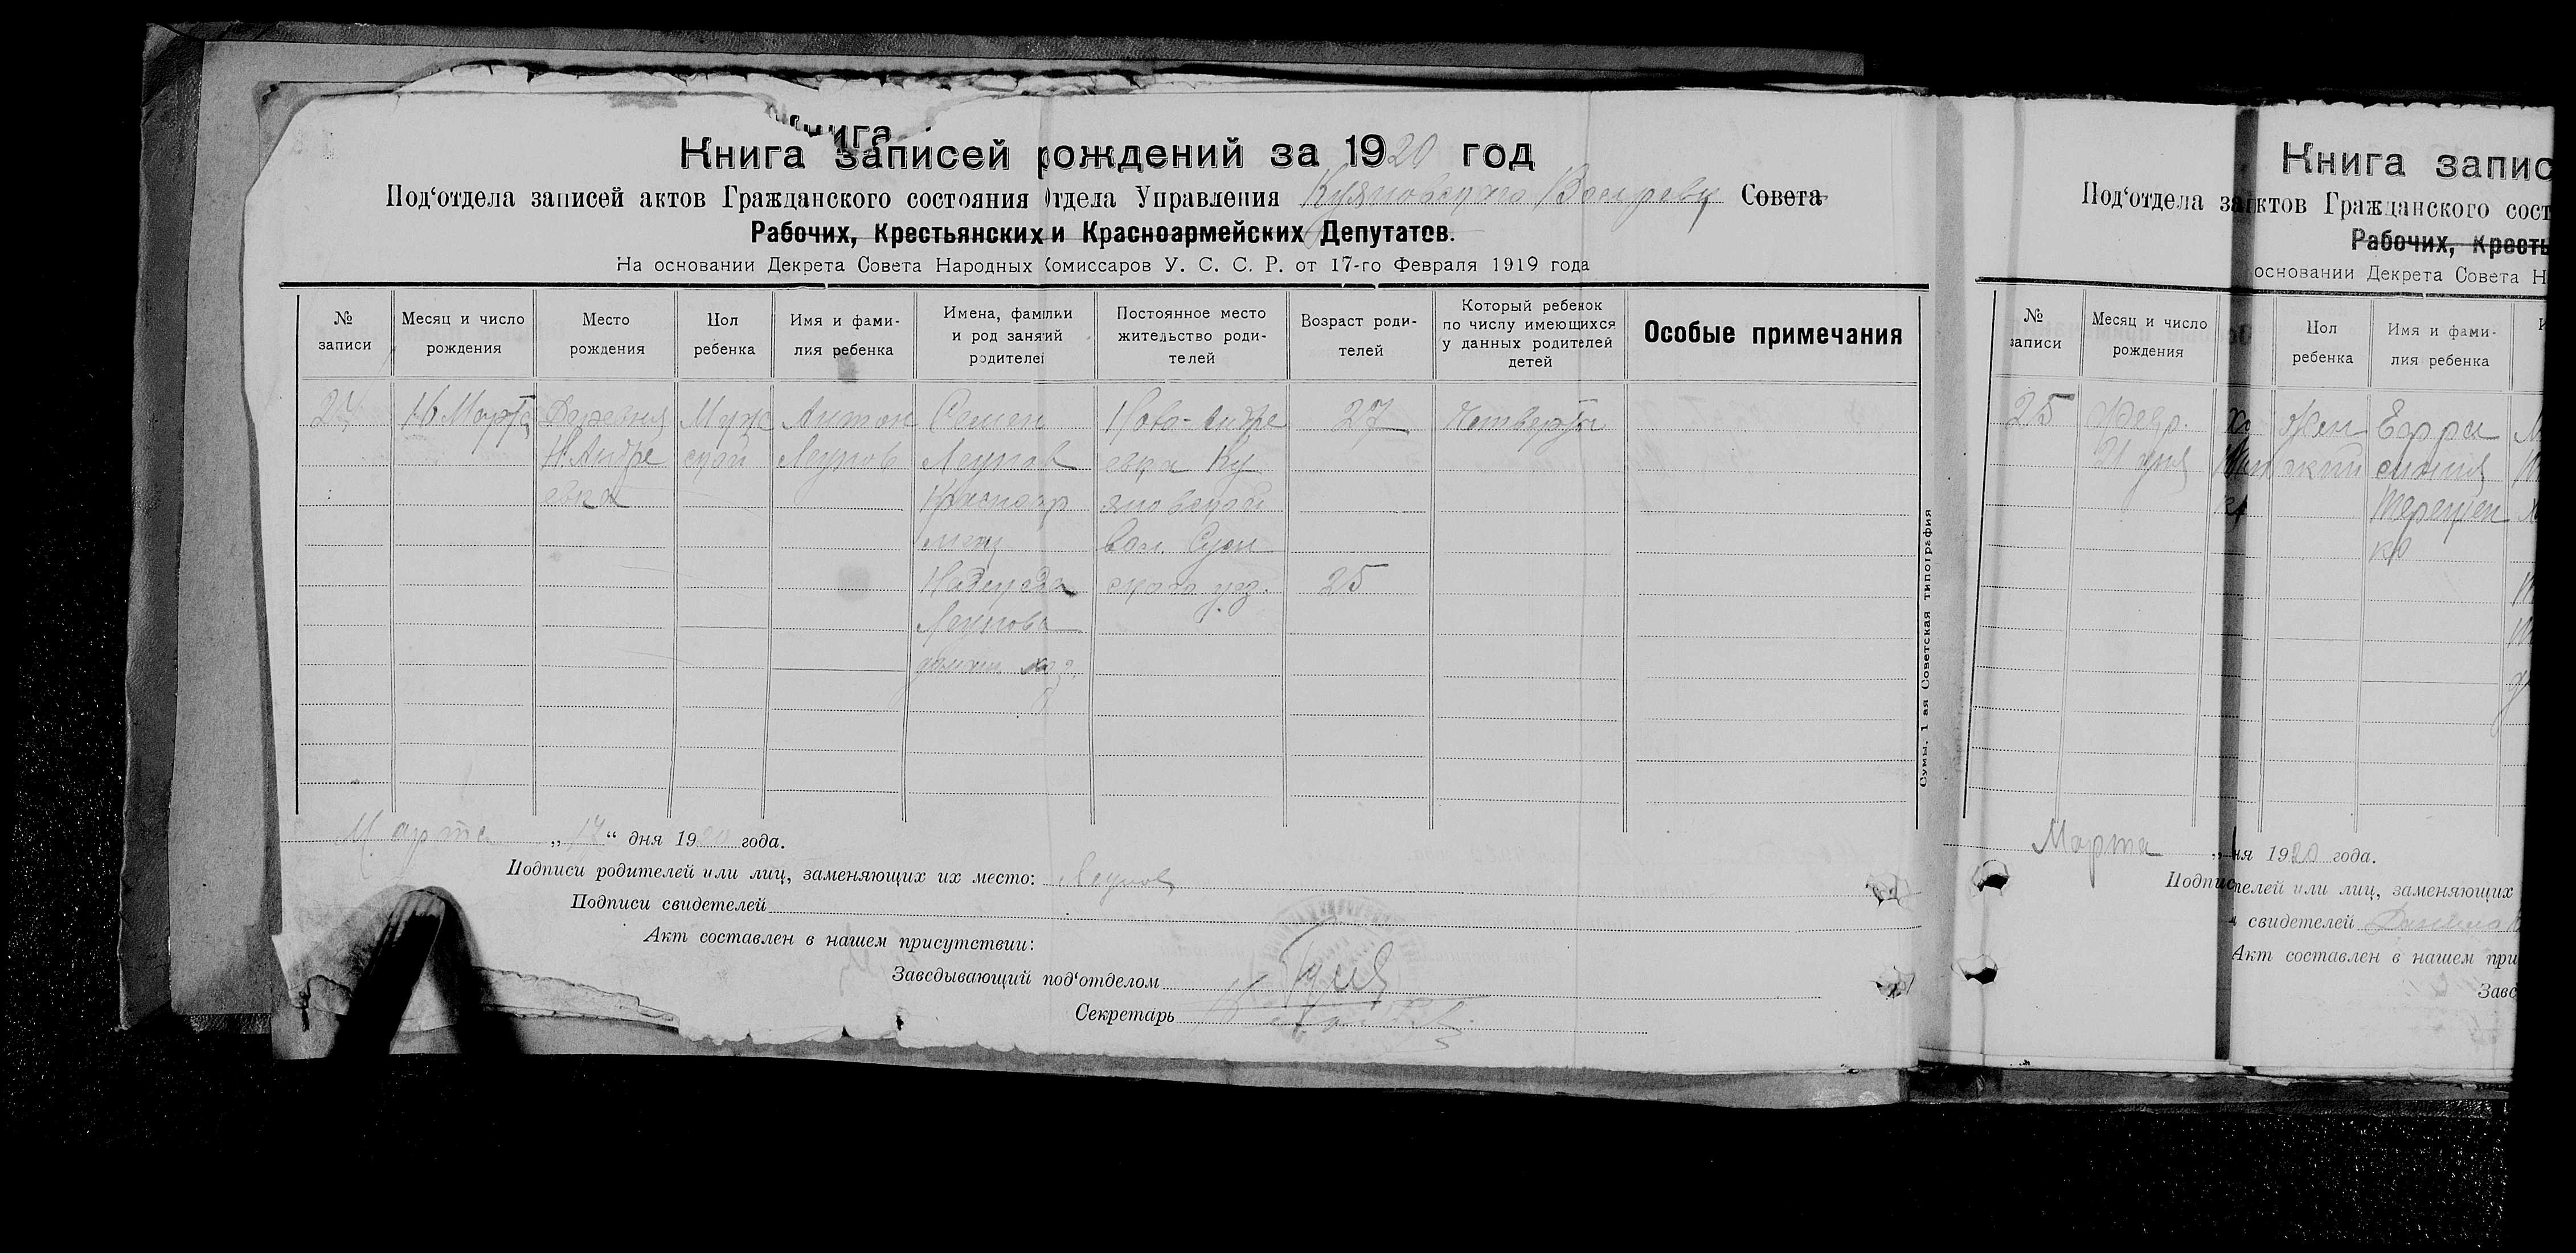 Книга записей рождений за 1920 год
Под‘отдела записей актов Гражданского состояния Отдела Управления Совета
Рабочих, Крестьянских и Красноармейских Депутатов.
На основании Декрета Совета Народных Комиссаров У. С. С. Р. от 17-го Февраля 1919 года
№ записи
Месяц и число рождения
Место рождения
Пол ребенка
Имя и фами-
лия ребенка
Имена, фамилии
и род занятий
родителей
Постоянное место
жительство роди-
телей
Возраст роди-
телей
Который ребенок
по числу имеющихся
у данных родителей
детей
Особые примечания
24 16 Марта Деревня Муж Антон Семен Ново-Андре 27 Четвертый
Н Андре ской Леунов Леунов евка Ку
евка Красноар яновской
меец вол. Сум
Надежда ского уез. 25
Леунова
домаш. хоз.
Сумы. 1 ая Советская типография
Марта „17“ дня 1920 года.
Подписи родителей или лиц, заменяющих их место: Леунов
Подписи свидетелей
Акт составлен в нашем присутствии:
Заведывающий под‘отделом
Секретарь
Книга запис
Под‘отдела за ктов Гражданского сост
Рабочих, Кресть
основании Декрета Совета Н
№ записи
Месяц и число
рождения
Пол
ребенка
Имя и фами-
лия ребенка
25 Февр. Жен Евфро
21 дня ский синия
Терещен
ко
Марта ня 1920 года.
Подпис телей или лиц, заменяющих
свидетелей
Акт составлен в нашем при
Завс